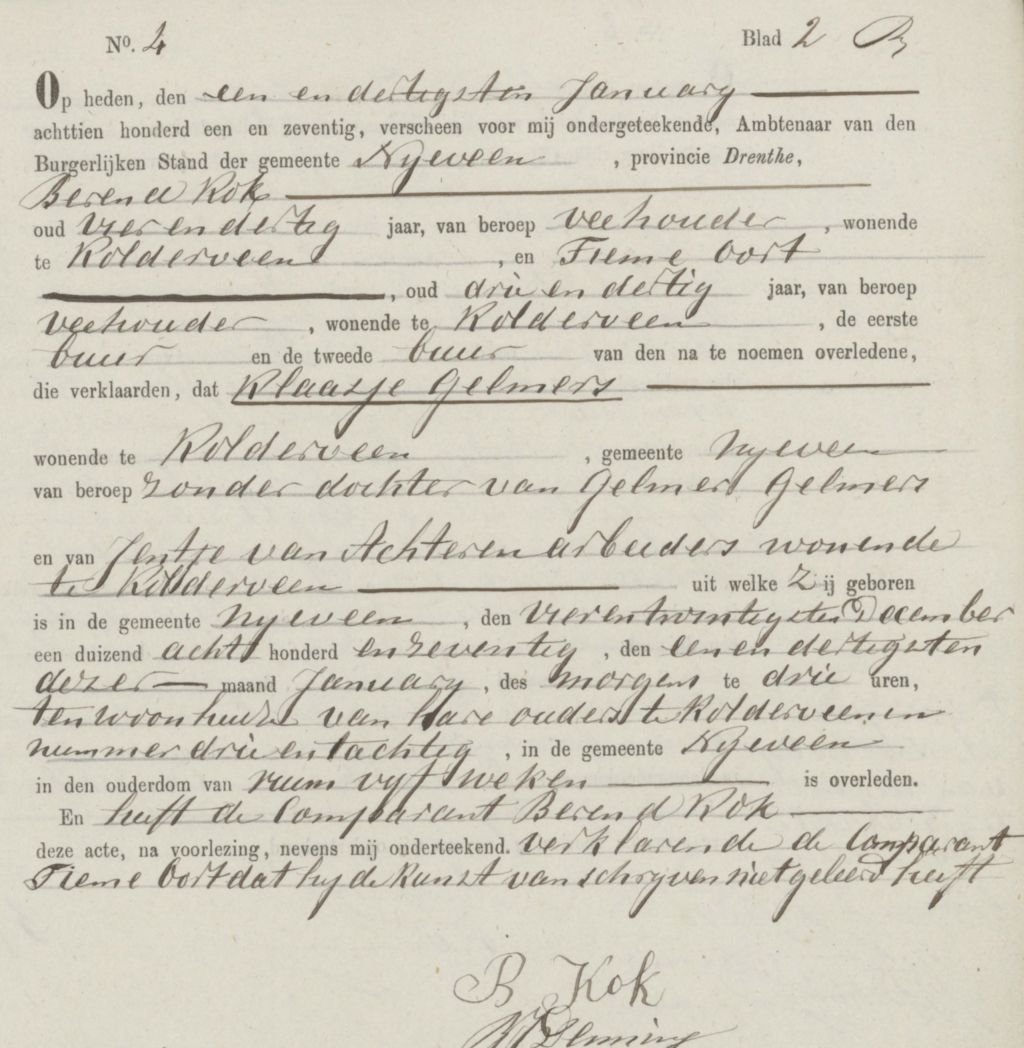 No. 4 Blad 2
Op heden, den een en dertigsten January
achttien honderd een en zeventig, verscheen voor mij ondergeteekende, Ambtenaar van den
Burgerlijken Stand der gemeente Nyeveen , provincie Drenthe,
Berend Kok
oud vier en dertig jaar, van beroep veehouder , wonende
te Kolderveen , en Tieme Oort
, oud drie en dertig jaar, van beroep
veehouder , wonende te Kolderveen , de eerste
buur en de tweede buur van den na te noemen overledene,
die verklaarden, dat Klaasje Gelmers
wonende te Kolderveen , gemeente Nyeveen
van beroep zonder dochter van Gelmer Gelmers
en van Jentje van Achteren arbeiders wonende
te Kolderveen uit welke Zij geboren
is in de gemeente Nyeveen , den vierentwintigsten December
een duizend acht honderd en zeventig , den een en dertigsten
dezer maand January , des morgens te drie uren,
ten woonhuize van hare ouders te Kolderveen in
nummer drie en tachtig , in de gemeente Nyeveen
in den ouderdom van ruim vyf weken is overleden.
En heeft de Comparant Berend Kok
deze acte, na voorlezing, nevens mij onderteekend. verklarende de Comparant
Tieme Oort dat hy de kunst van schryven niet geleerd heeft
B Kok